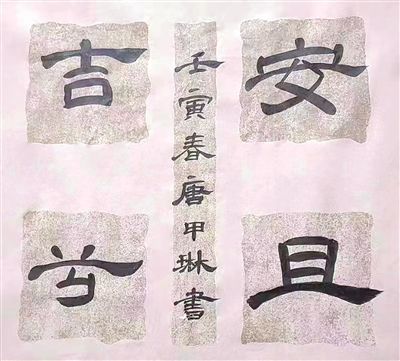 安且
吉兮
壬寅春唐甲琳書